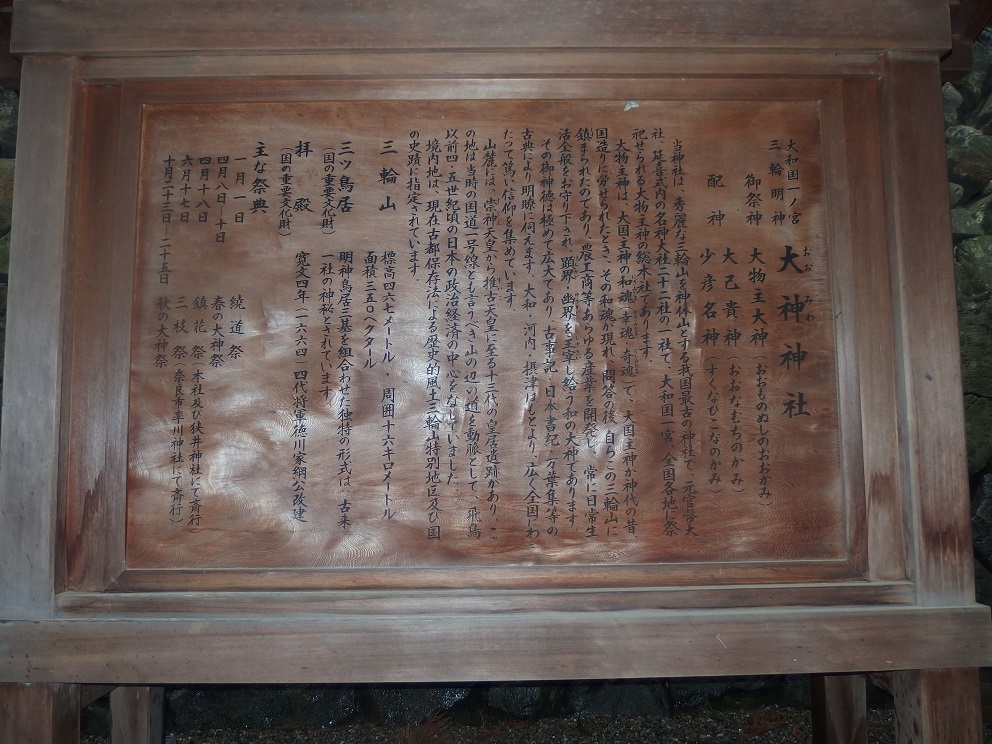 大和国一ノ宮
三輪明神
大神神社
おお みわ
御祭神 大物主大神（おおものぬしのおおかみ）
配神 大己貴神（おおなむちのかみ）
少彦名神（すくなひこなのかみ）
当神社は、秀麗な三輪山を神体山とする我国最古の神社で、元官幣大
社、延喜式内の名神大社二十二社の一社で、大和国一宮、全国各地に祭
祀せられる大物主神の総本社であります。
大物主神は、大国主神の和魂（幸魂、奇魂）で、大国主神が神代の昔、
国造りに労せられたとき、その和魂が現れ、問答の後、自らこの三輪山に
鎮まられたのであり、農工商等あらゆる産業を開発し、常に日常生
活全般をお守り下され、顕界・幽界を主宰し給う和の大神であります。
その御神徳は極めて広大であり、古事記・日本書紀・万葉集等の
古典により明瞭に伺えます。大和・河内・摂津はもとより、広く全国にわ
たって篤い信仰を集めています。
山麓には、崇神天皇から推古天皇に至る十三代の皇居遺跡があり、こ
の地は当時の国道一号線とも言うべき山の辺の道を動脈として、飛鳥
以前四・五世紀頃の日本の政治経済の中心をなしていました。
境内地は、現在古都保存法による歴史的風土三輪山特別地区及び国
の史蹟に指定されています。
三輪山 標高四六七メートル・周囲十六キロメートル
面積三五〇ヘクタール
三ツ鳥居 明神鳥居三基を組合わせた独特の形式は、古来
（国の重要文化財） 一社の神秘とされています。
拝殿 寛文四年（一六六四）四代将軍徳川家綱公改建
（国の重要文化財）
主な祭典
一月一日 繞道祭
四月八日―十日 春の大神祭
四月十八日 鎮花祭（本社及び狭井神社にて斎行）
六月十七日 三枝祭（奈良市率川神社にて斎行）
十月二十三日―二十五日 秋の大神祭